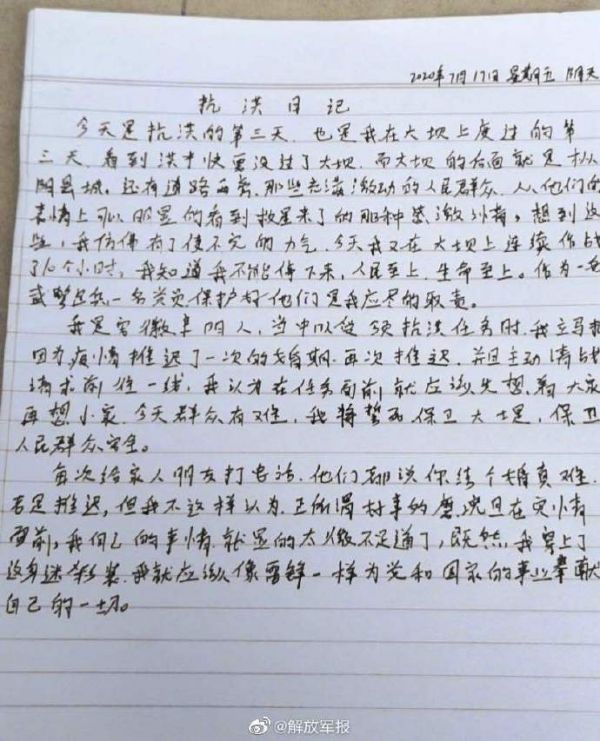 2020年7月17日 星期五 阴天
抗洪日记
今天是抗洪的第三天,也是我在大坝上度过的第
三天,看到洪水快要没过了大坝,而大坝的后面就是枞
阳县城,还有道路两旁,那些充满激动的人民群众,从他们的
表情上可以明显的看到救星来了的那种感激之情,想到这
些,我仿佛有了使不完的力气,今天我又在大坝上连续作战
了16个小时,我知道我不能停下来,人民至上,生命至上。作为一名
武警官兵一名党员保护好他们是我应尽的职责。
我是安徽阜阳人,当中队接到抗洪任务时,我立马把
因为疫情推迟了一次的婚期再次推迟,并且主动请战
请求前往一线,我认为在任务面前就应该先想着大家
再想小家,今天群众有难,我将誓死保卫大堤,保卫
人民群众安全。
每次给家人朋友打电话,他们都说你结个婚真难,
老是推迟,但我不这样认为,正所谓好事多磨,况且在灾情
面前,我自己的事情就显的太微不足道了,既然我穿上了
这身迷彩装,我就应该像雷锋一样为党和国家的事业奉献
自己的一切。
@解放军报